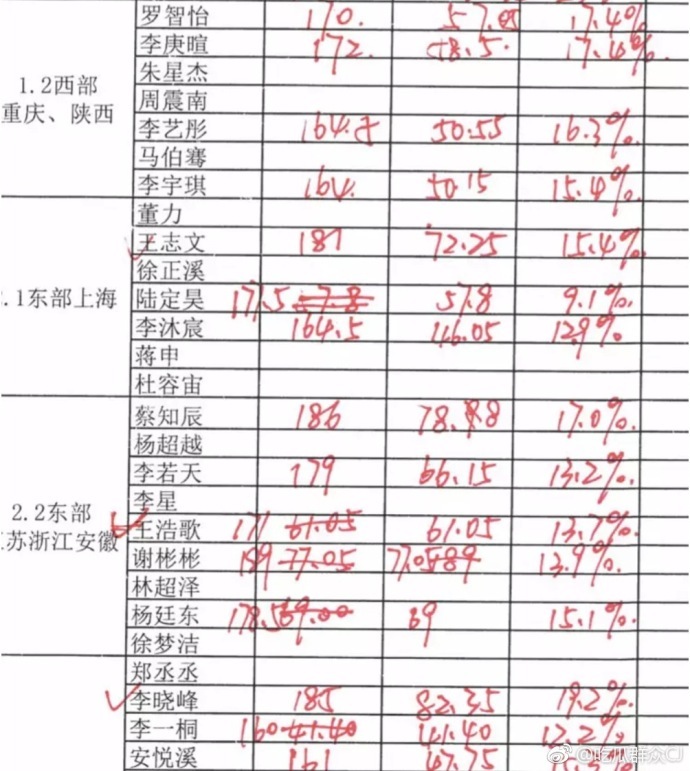 罗智怡 170. 57.05 17.4%
李庚暄 172. 58.5. 17.4%.
1.2西部
重庆、陕西
朱星杰
周震南
李艺彤 164.5 50.55 16.3%.
马伯骞
李宇琪 164. 50.15 15.4%.
董力
王志文 181 72.25 15.4%.
徐正溪
.1东部上海
陆定昊 177.5 57.8 9.1%.
李沐宸 164.5 46.05 12.9%.
蒋申
杜容宙
蔡知辰 186 17.0%.
杨超越
李若天 179 66.15 13.2%.
李星
2.2东部
苏浙江安徽
王浩歌 171 61.05 61.05 13.7%.
谢彬彬 77.05 77.05 13.9%.
林超泽
杨廷东 178.5 69.00 69 15.1%.
徐梦洁
郑丞丞
李晓峰 185 82.35 19.2%.
李一桐 160 41.40 41.40 12.2%.
安悦溪 161 47.75
@吃瓜群众CJ